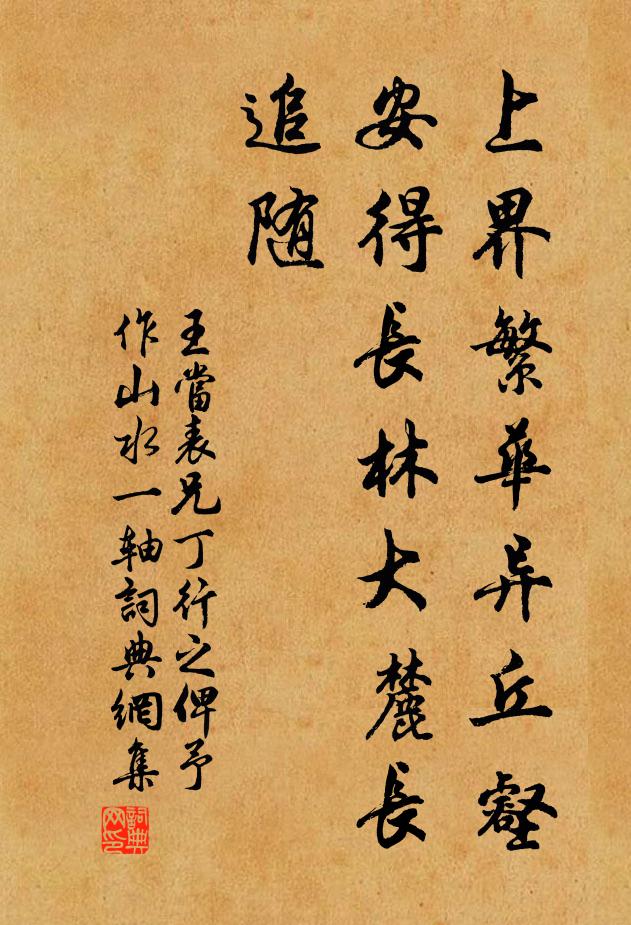 上界繁華异丘壑
安得長林大麓長
追随
王當表兄丁行之俾予
作山水一軸詞典網集
詞典网印